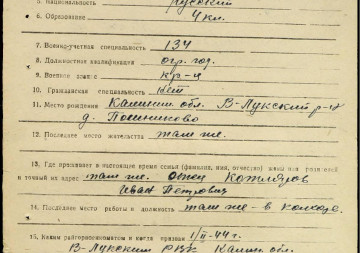 5. Национальность русский
6. Образование 4 кл.
7. Военно-учетная специальность 134
8. Должностная квалификация огр. год.
9. Военное звание кр-ц
10. Гражданская специальность нет
11. Место рождения Калинин. обл. В-Лукский р-н
д.
12. Последнее место жительства там же.
13. Где проживает в настоящее время семья (фамилия, имя, отчество) жены или родителей
и точный их адрес там же. Отец
Иван Петрович
14. Последнее место работы и должность там же - в колхозе.
15. Каким райгорвоенкоматом и когда призван 1/II-44 г.
В-Лукским РВК Калин. обл.